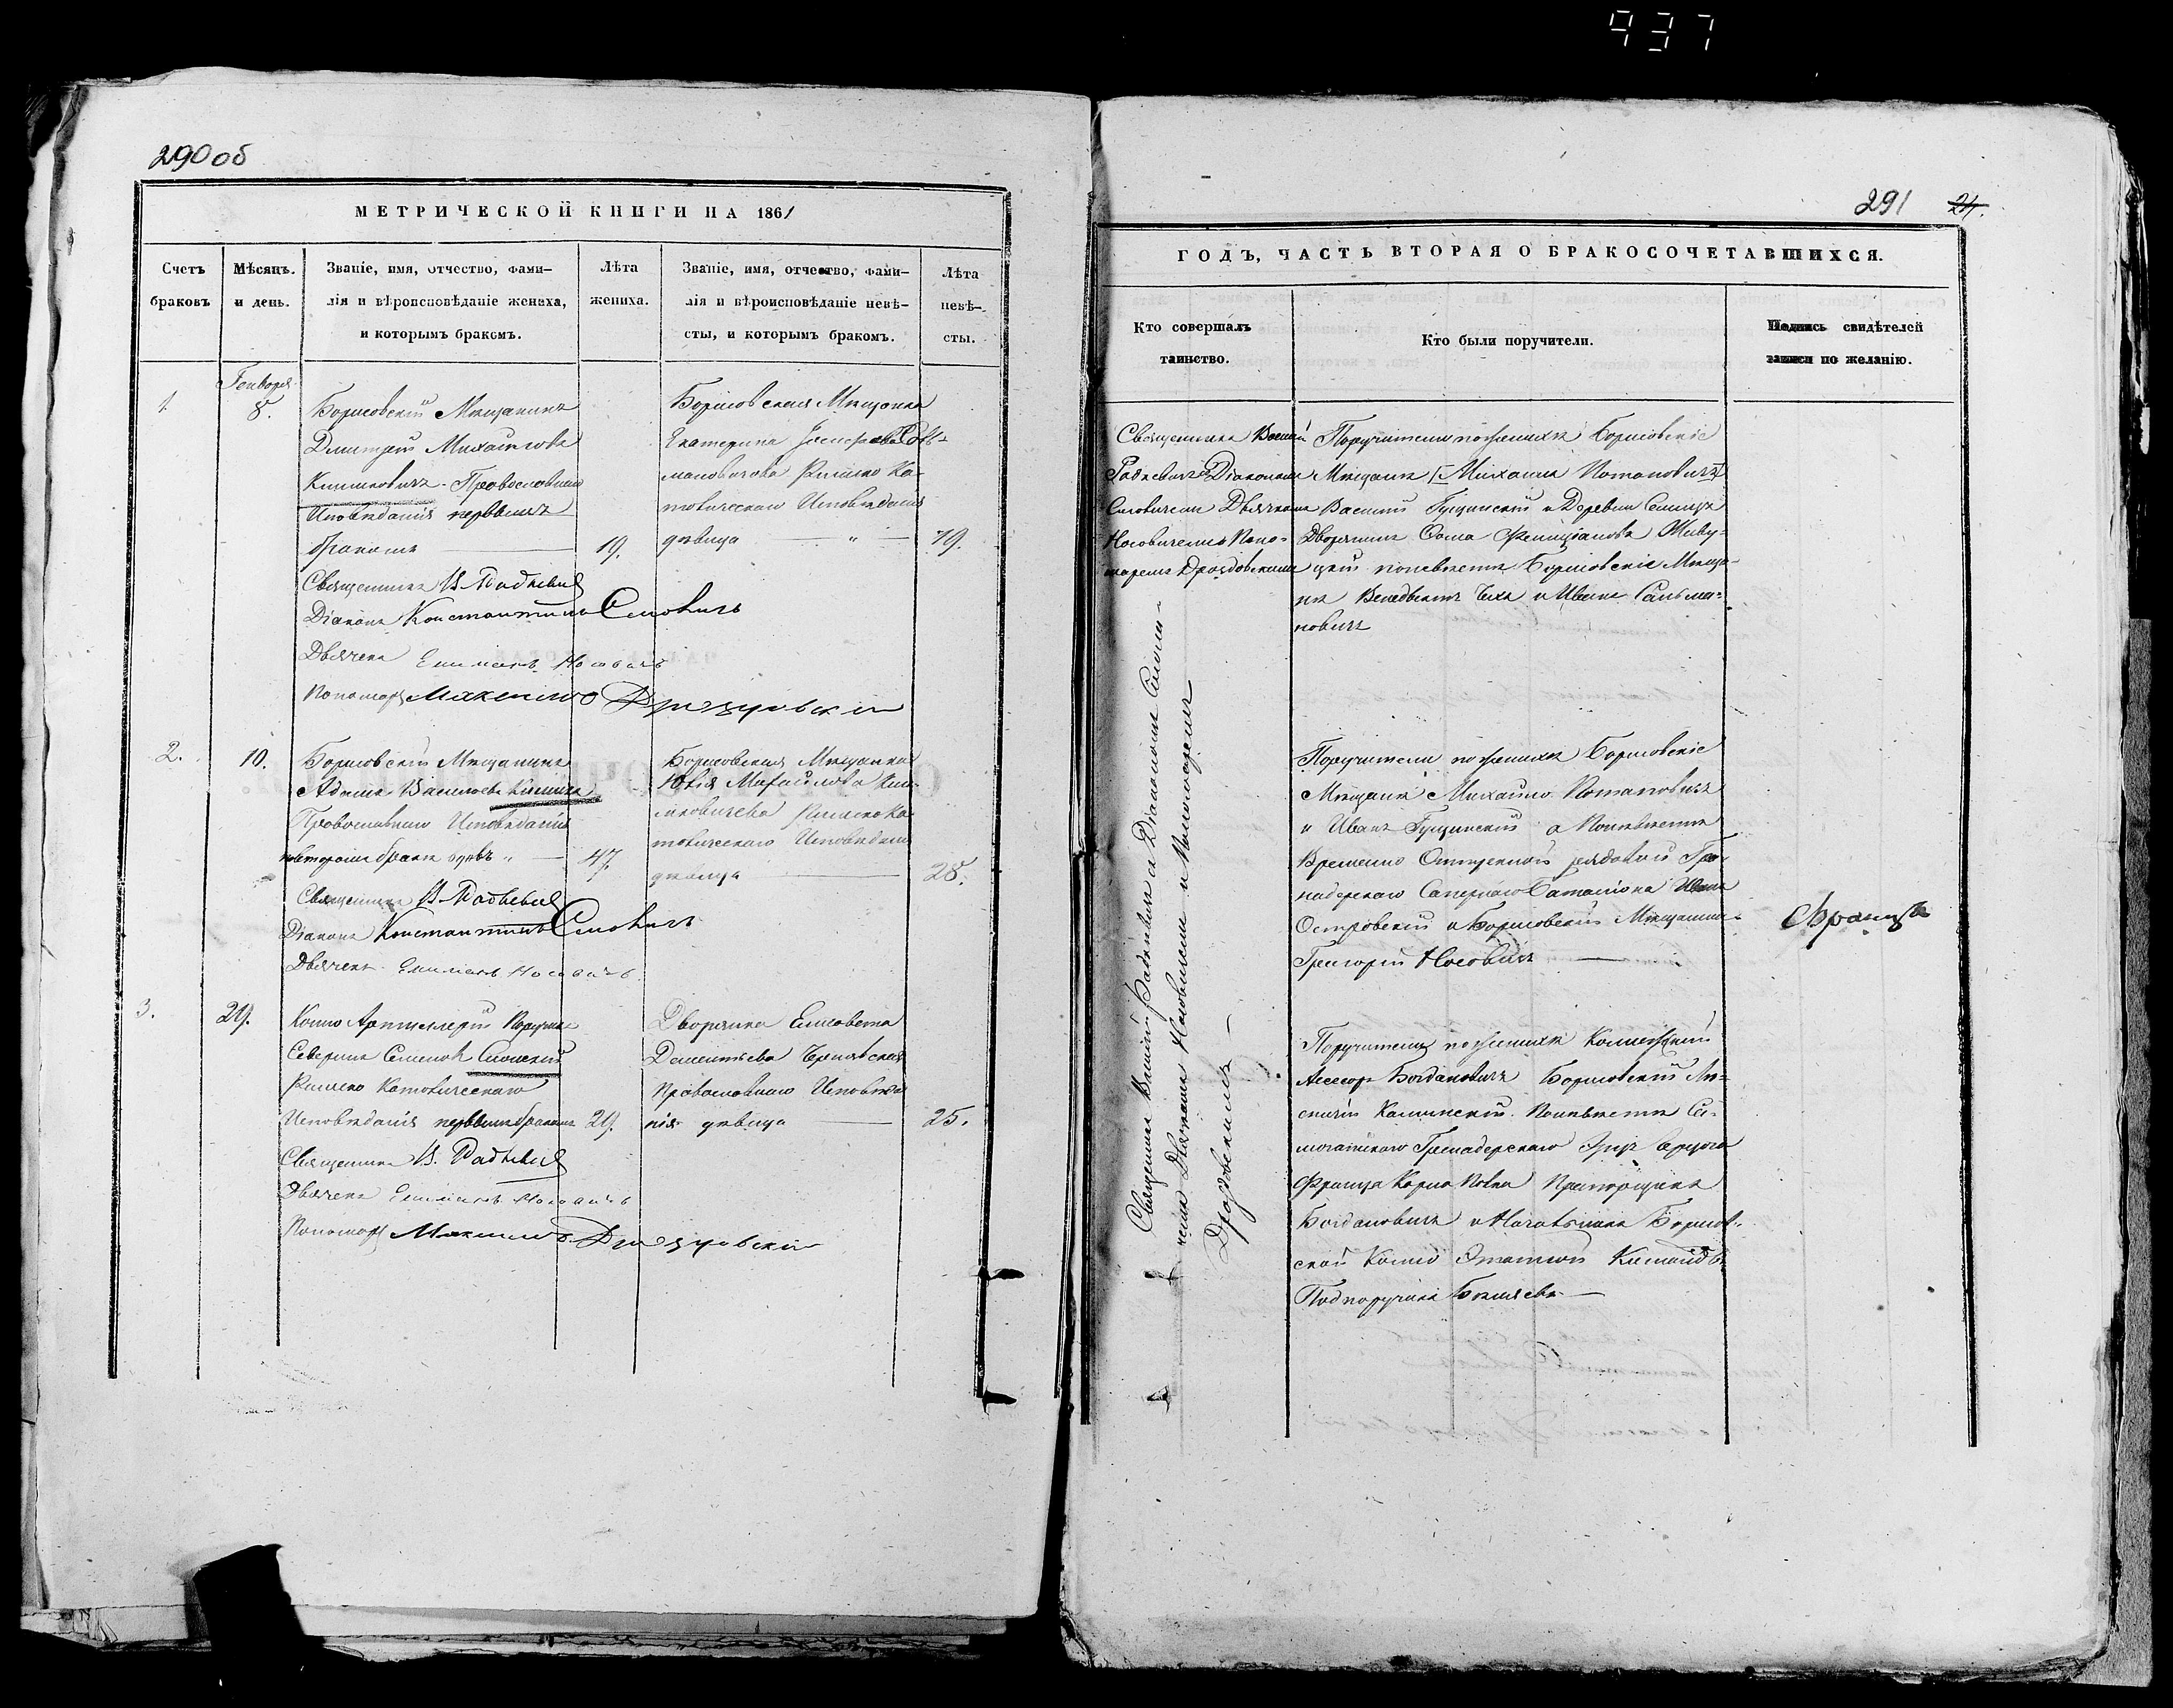 937
290 об
МЕТРИЧЕСКОЙ КНИГИ НА 1861
Счетъ браковъ
Мѣсяцъ. и день.
Званіе, имя, отчество, фами-
лія и вѣроисповѣданіе жениха,
и которымъ бракомъ.
Лѣта
жениха.
Званіе, имя, отчество, фами-
лія и вѣроисповѣданіе невѣ-
сты, и которымъ бракомъ.
Лѣта
невѣ-
сты.
1.
Генваря
8.
Борисовскій Мѣщанинъ
Дмитрій Михайловъ
Климковичъ Православнаго
Исповѣданія первымъ
бракомъ
19.
Священникъ В. Радкевич
Діаконъ Константинъ Смоличъ
Дьячекъ Носовичъ
Пономарь Дроздовскій
Борисовская Мѣщанка
Екатерина
Римско Ка-
толическаго Исповѣданія
дѣвица
19.
2.
10.
Борисовскій Мѣщанинъ
Адамъ Васильевъ
Православнаго Исповѣданія
вторымъ бракомъ вдовъ
47.
Священникъ В. Радкевич
Діаконъ Константинъ Смоличъ
Дьячекъ Носовичъ
Борисовская Мѣщанка
Юлія Михайлова Кли-
мковичева Римско Ка-
толическаго Исповѣданія
дѣвица
28.
3.
29.
Конно Артиллеріи Поручикъ
Северинъ Семеновъ
Римско Католическаго
Исповѣданія первымъ бракомъ
29.
Священникъ В. Радкевич
Дьячекъ Носовичъ
Пономарь Дроздовскій
Дворянка Елисавета
Дементьева
Православнаго Исповѣда
нія дѣвица
25.
291
24.
ГОДЪ, ЧАСТЬ ВТОРАЯ О БРАКОСОЧЕТАВШИХСЯ.
Кто совершалъ
таинство.
Кто были поручители.
Подпись свидѣтелей
записи по желанію.
Священникъ
Радкевичъ Діакономъ
Смоличемъ Дьячкомъ
Носовичемъ Поно-
маремъ Дроздовскимъ
Поручители по женихѣ Борисовскіе
Мѣщане Михаилъ Потаповичъ
Василій Гущинскій и Деревни
Дворянинъ Ѳома Живу-
щій по невѣстѣ Борисовскіе Мѣща-
не и Иванъ Сальма-
новичъ
Священникъ Радкевичъ съ Діакономъ Смоли-
чемъ Дьячкомъ Носовичемъ и Пономаремъ
Дроздовскимъ
Поручители по женихѣ Борисовскіе
Мѣщане Михайло Потаповичъ
и Иванъ Гущинскій а По невѣстѣ
Временно Отпускной рядовой Гре-
надерскаго Сапернаго Баталіона Иванъ
Островскій и Борисовскій Мѣщанинъ
Григорій Носовичъ
Францъ
Поручители по женихѣ Коллежскій
Асесоръ Богдановичъ Борисовскій Лѣ-
сничій Калинскій По невѣстѣ Са-
могитскаго Гренадерскаго
Франца Карла Полка Прапорщикъ
Богдановичъ и Начальникъ Борисов-
ской Конно Этапной Команды
Подпоручикъ